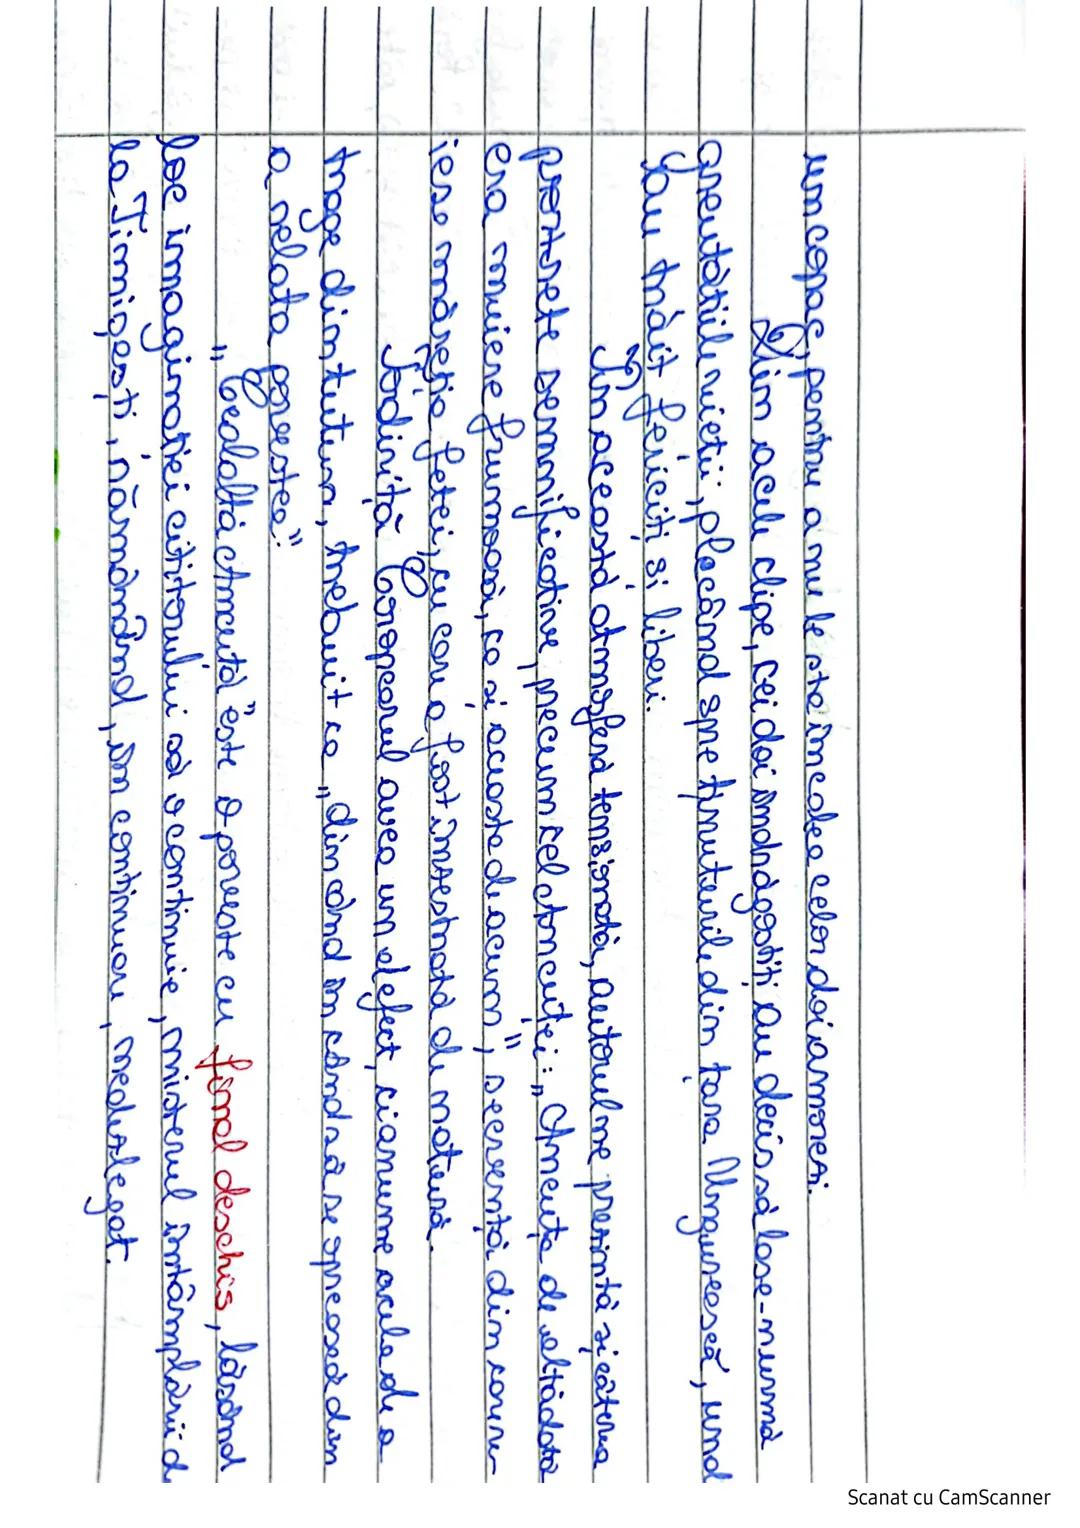 un copac, pentru a nu le sta în calea celor doi amorezi.
Din acele clipe, cei doi îndrăgostiți au decis să lase-n urmă
greutățiile vieții, plecând spre ținuturile din țara Ungurească, und
au trăit fericiți și liberi.
În această atmosferă tensionată, autorul ne prezintă și câteva
portrete semnificative, precum cel Ancuței: „Ancuța de altădată
era muiere frumoasă, ca și aceasta de acum", secvență din care
iese măreția fetei, cu care a fost înzestrată de natură.
Ioniță Coropcarul avea un defect, și anume acela de a
trage din tutun, trebuit ca „din când în când să se oprească din
a relata povestea".
„Cealaltă Ancuță" este o poveste cu final deschis, lăsând
loc imaginației cititorului să o continuie, misterul întâmplării d
la Timișești, rămânând, în continuare, nedezlegat.
Scanat cu CamScanner